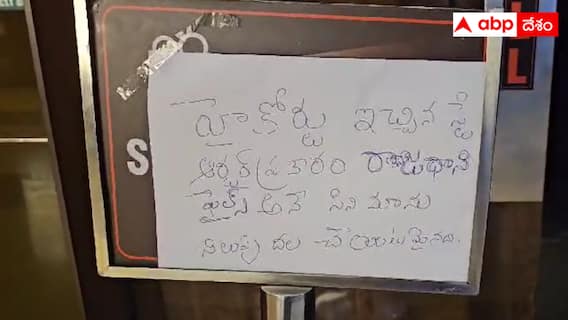 abp దేశం
హైకోర్టు ఇచ్చిన స్టే
S
ఆర్డర్ ప్రకారం రాజధాని
ఫైల్స్ అనే సినిమాను
నిలుపుదల చేయటమైనది.
L